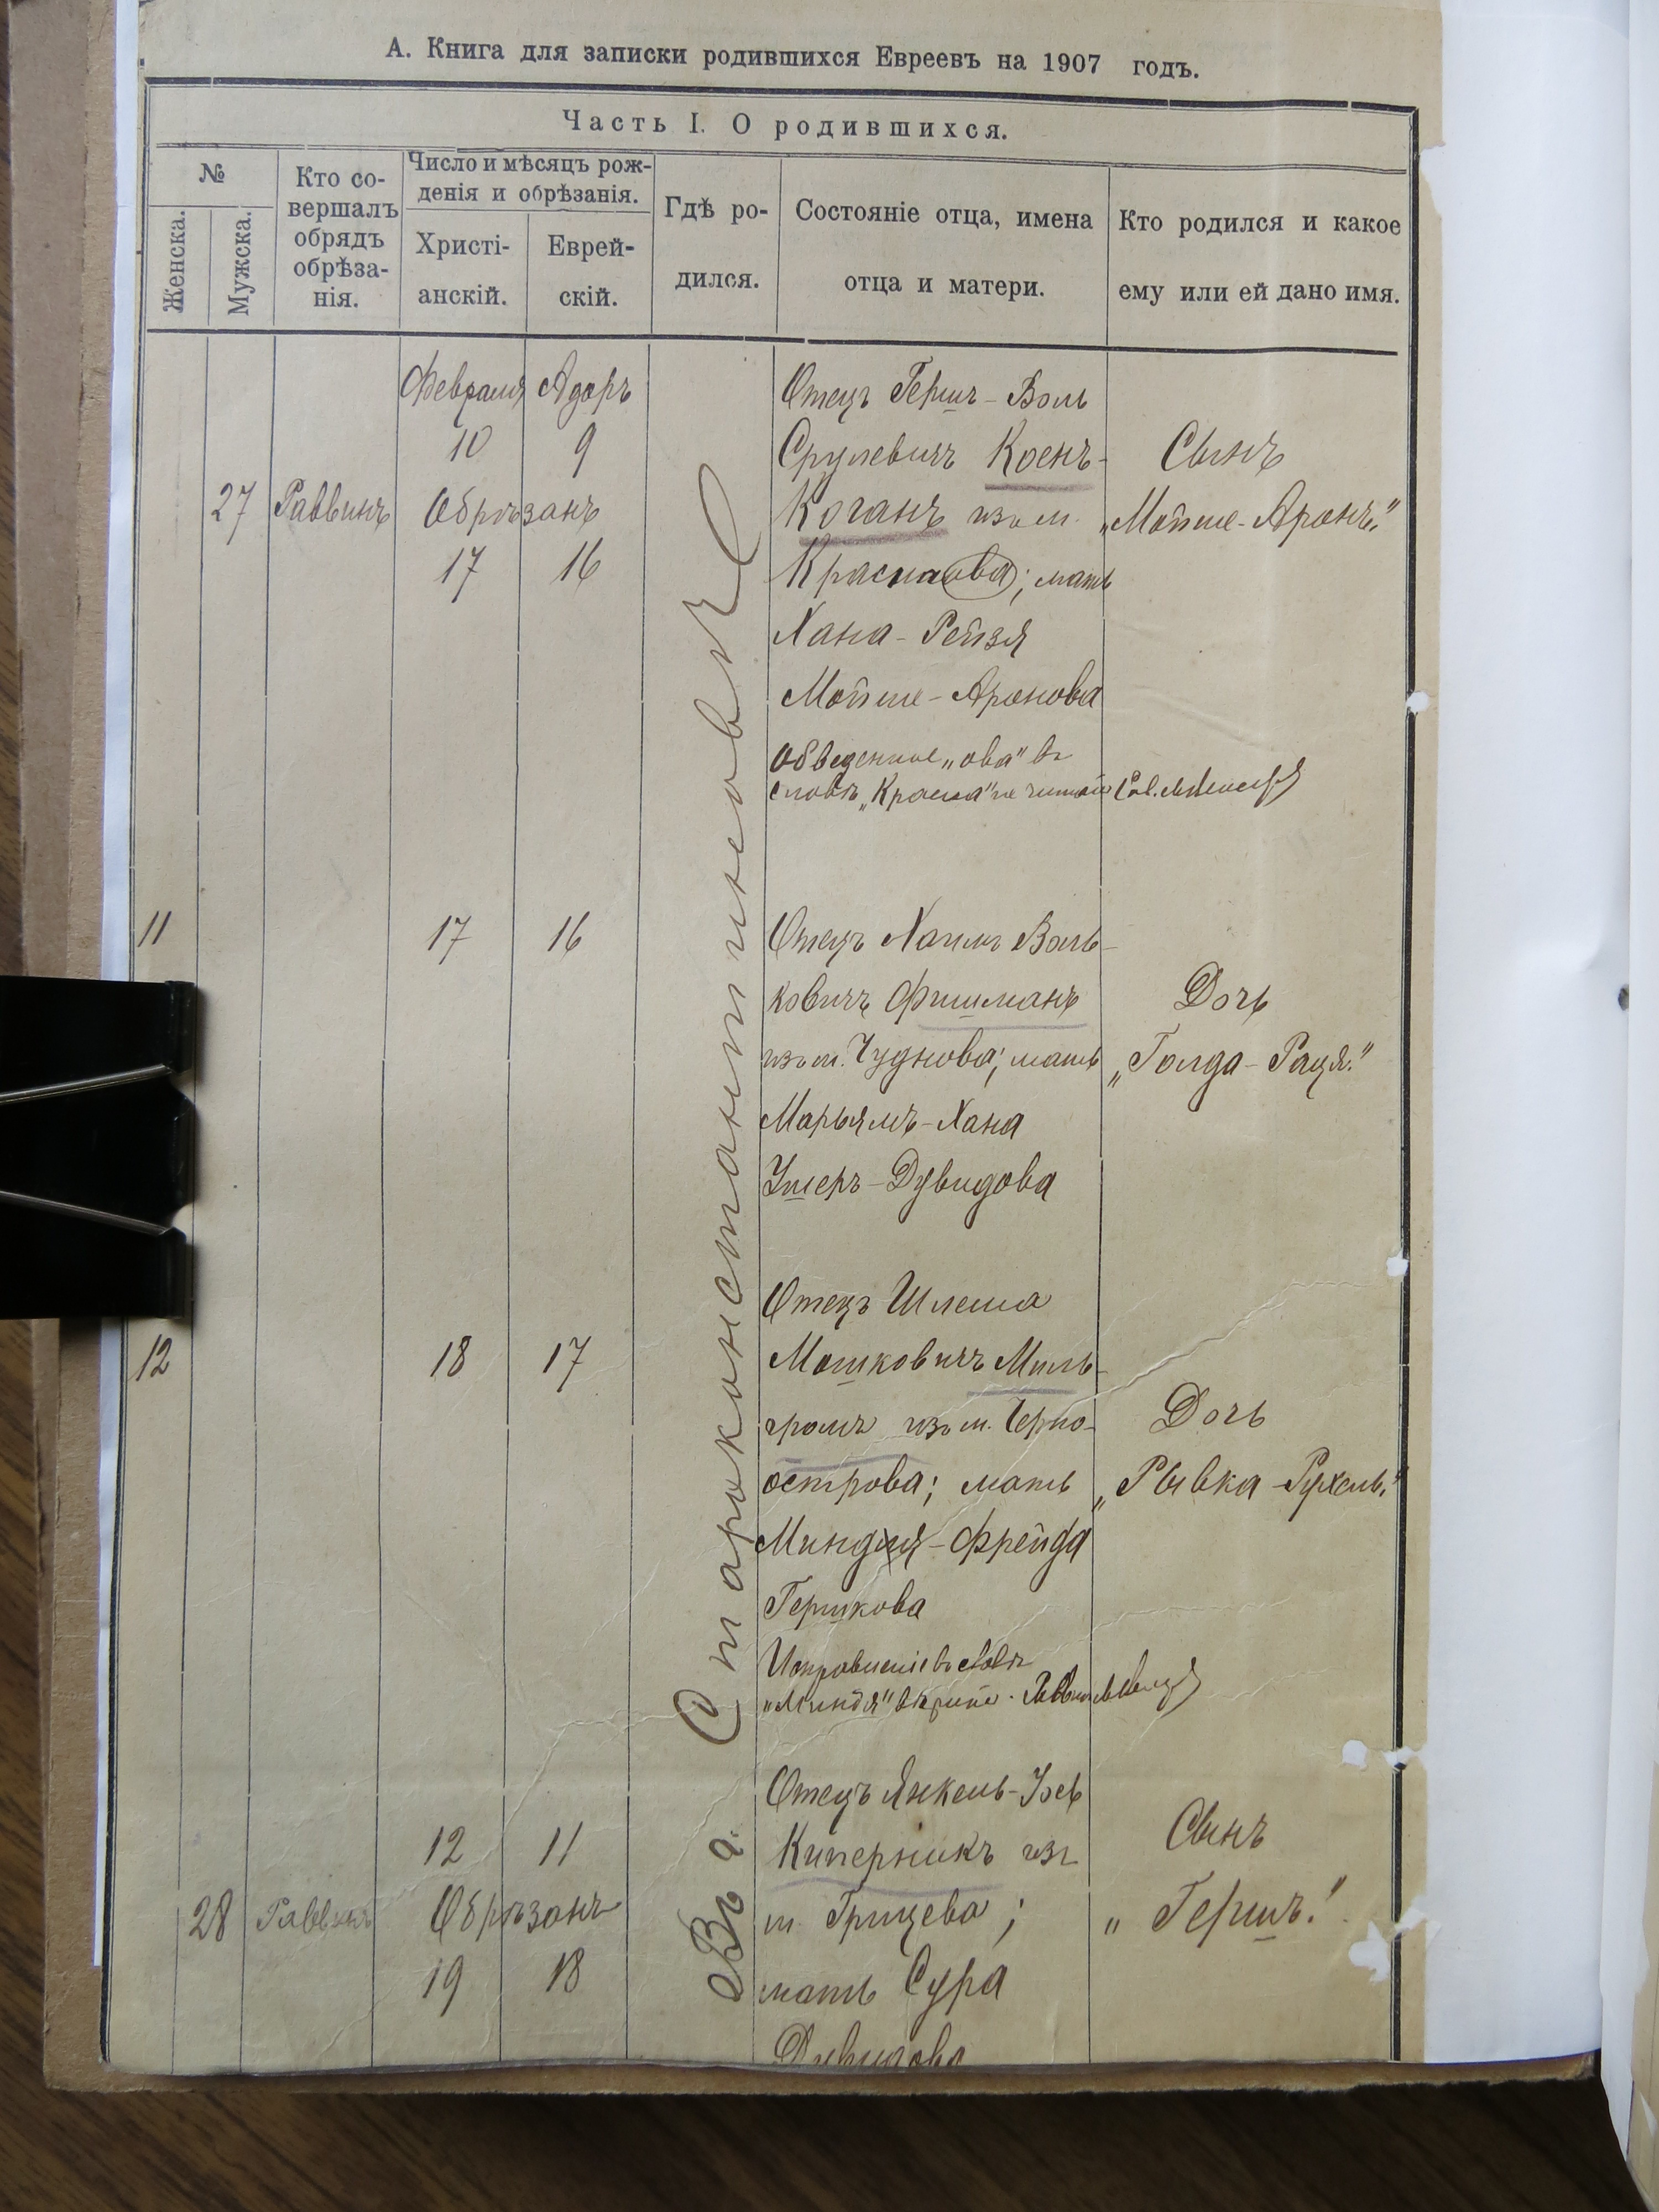 А. Книга для записки родившихся Евреевъ на 1907 годъ.
Часть I. О родившихся.
№
Женска.
Мужска.
Кто со-
вершалъ
обрядъ
обрѣза-
нія.
Число и мѣсяцъ рож-
денія и обрѣзанія.
Христі-
анскій.
Еврей-
скій.
Гдѣ ро-
дился.
Состояніе отца, имена
отца и матери.
Кто родился и какое
ему или ей дано имя.
Въ г. Староконстантиновѣ
Февраля Адоръ
10 9
27 Раввинъ Обрѣзанъ
17 16
Отецъ Гершъ-Воль
Срулевичъ Коенъ-
Коганъ изъ м.
Краснаова; мать
Хана-Рейзя
Мойше-Аронова
Обведенное „ова" въ
словѣ „Красна" не читать
Сынъ
„Мойше-Аронъ."
11 17 16
Отецъ Хаимъ Воль-
ковичъ Фишманъ
изъ м. Чуднова; мать
Марьямъ-Хана
Ушеръ-Дувидова
Дочь
„Голда-Раця."
12 18 17
Отецъ Шлема
Мошковичъ Миль-
громъ изъ м. Черно-
острова; мать
Миндля-Фрейда
Гершкова
Исправленіе въ словѣ
„Миндя" вѣрно. Раввинъ
Дочь
„Рывка-Рухель."
12 11
28 Раввинъ Обрѣзанъ
19 18
Отецъ Янкель-Іосъ
Киперникъ изъ
м. Грицева;
мать Сура
Дувидова
Сынъ
„Гершъ."